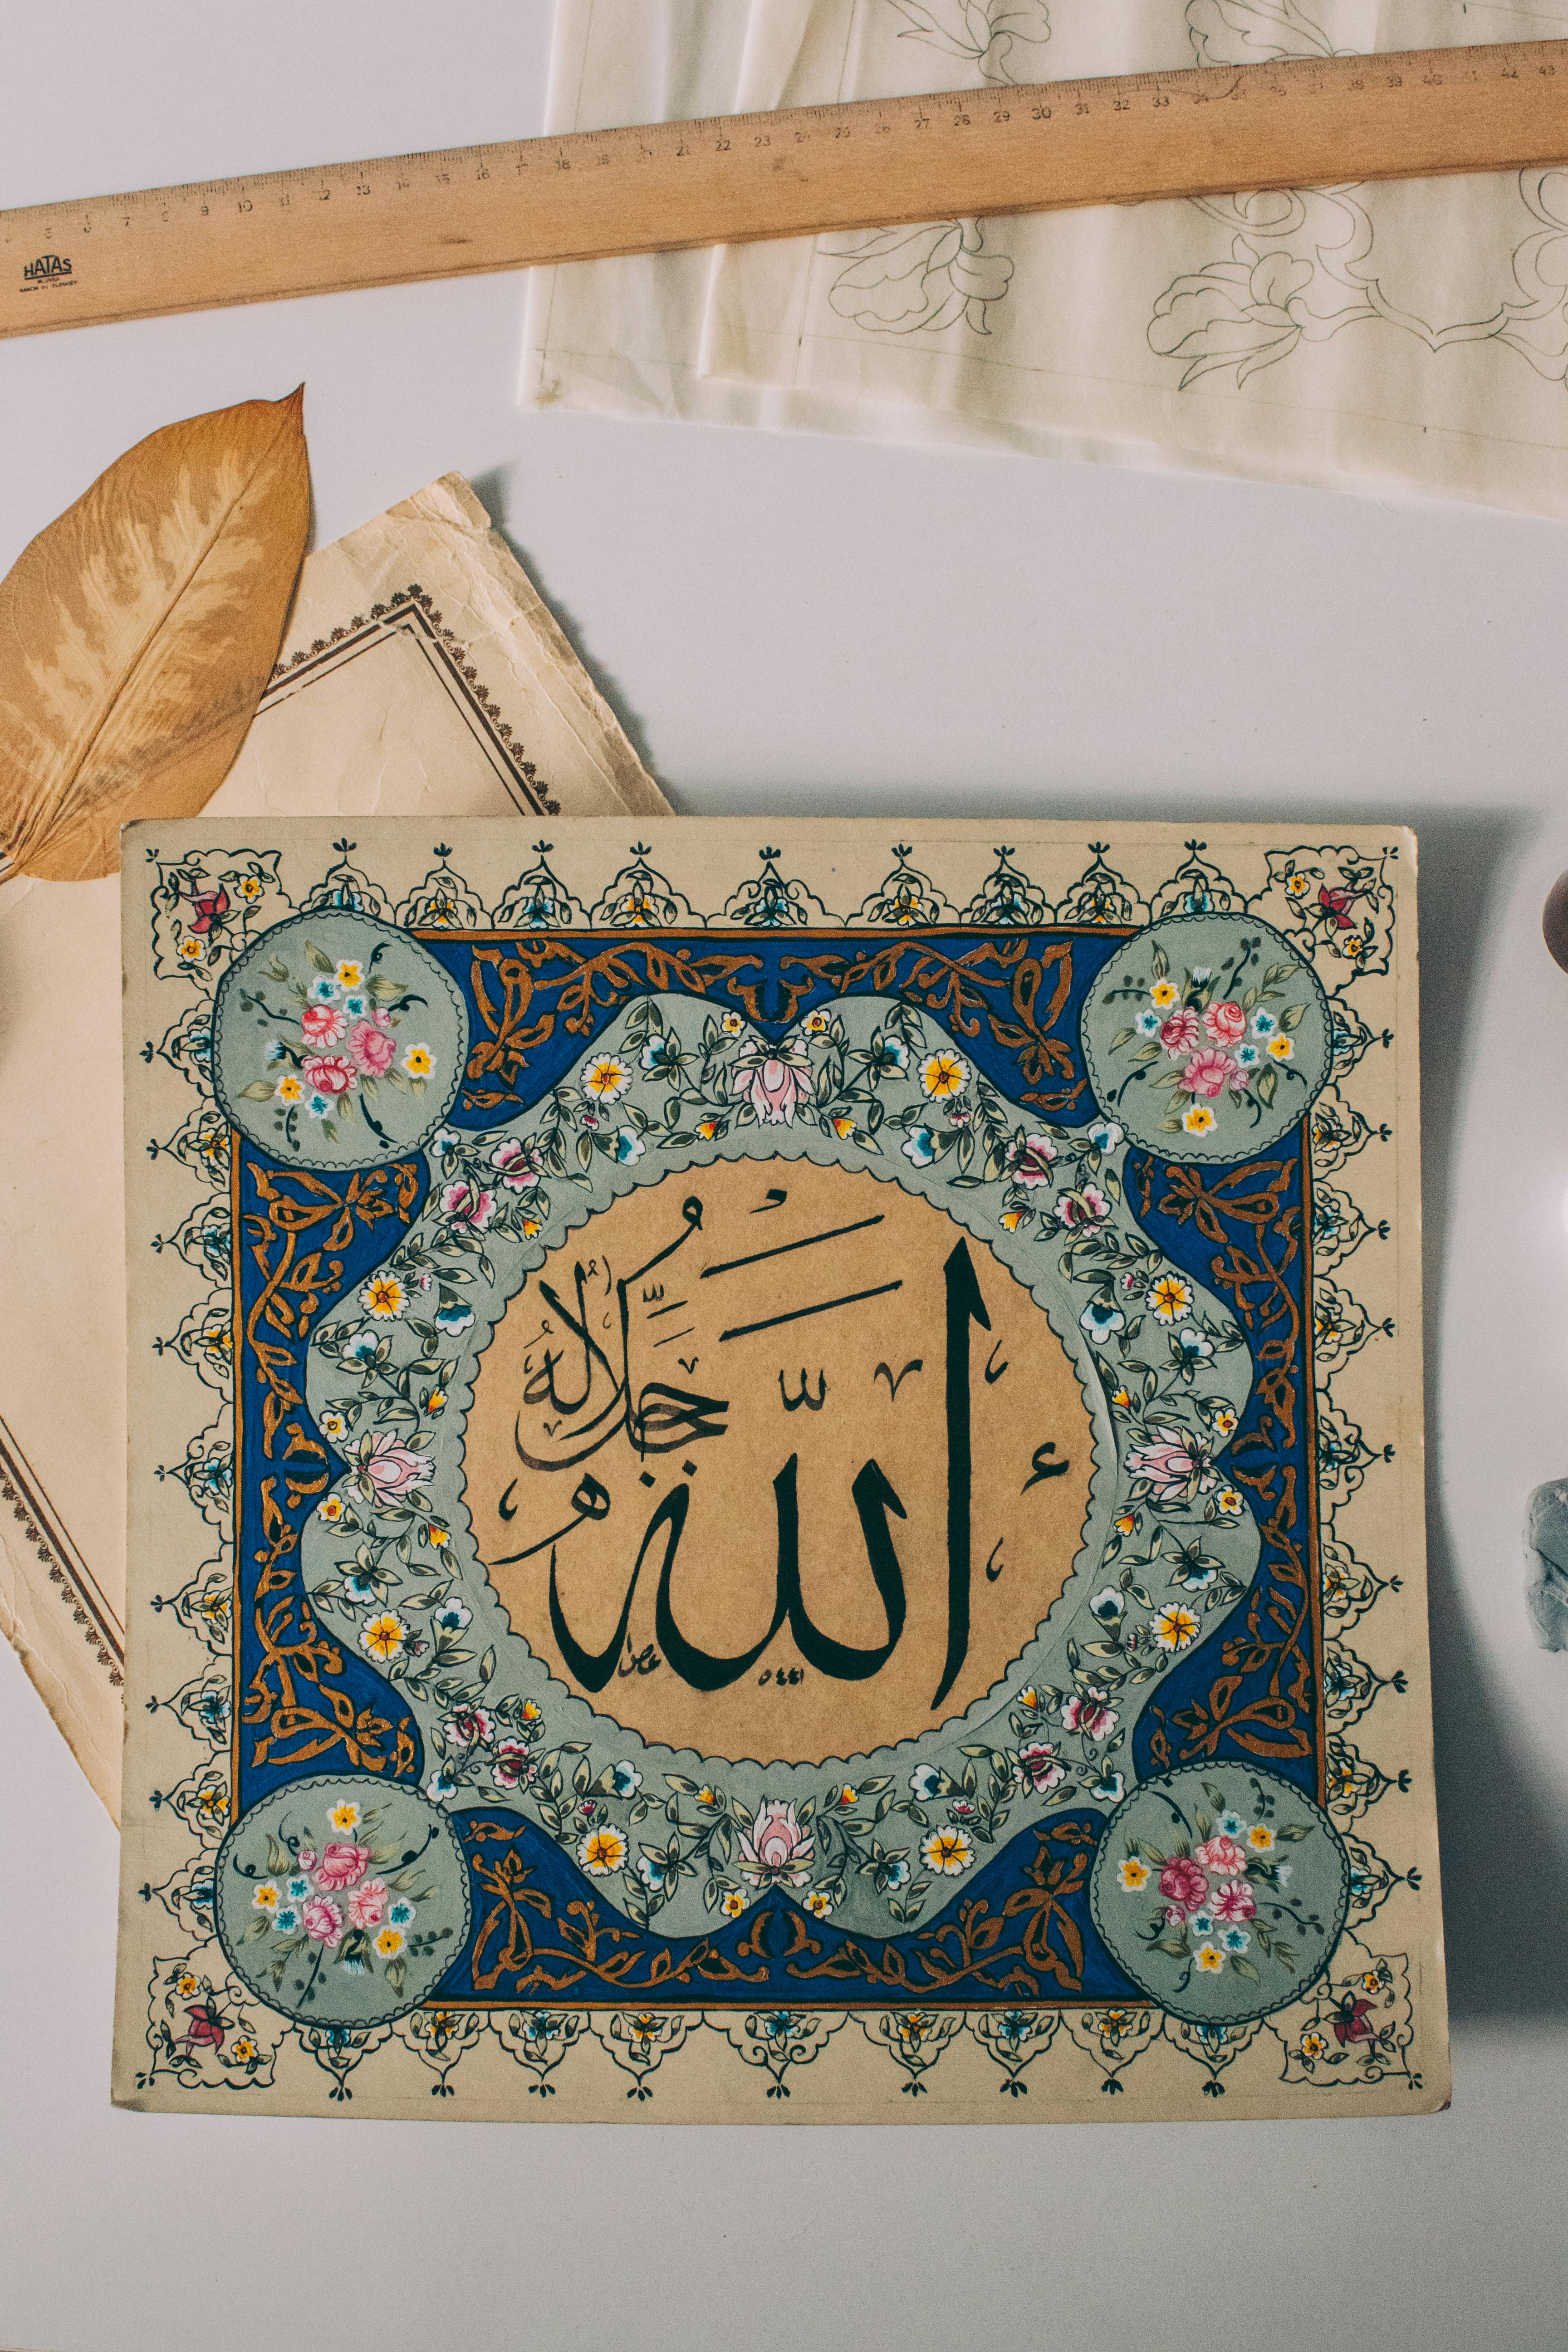 4 5 6 7 8 9 10 11 12 13 14 15 16 17 18 19 20 21 22 23 24 25 26 27 28 29 30 31 32 33 34 35 36 37 38 39 40 41 42 43
HATAS
BURSA
MADE IN TURKEY
الله
جل جلاله